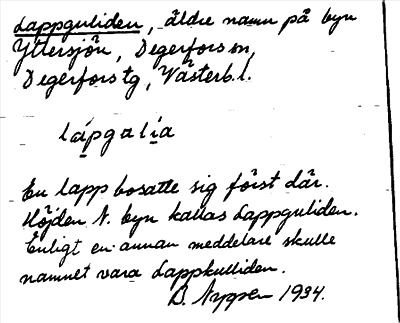 Lappguliden, äldre namn på byn
Yttersjön, Degerfors sn,
Degerfors tg, Västerb. l.
lápgalía
En lapp bosatte sig först där.
Höjden N. byn kallas Lappguliden.
Enligt en annan meddelare skulle
namnet vara Lappkulliden.
1934.